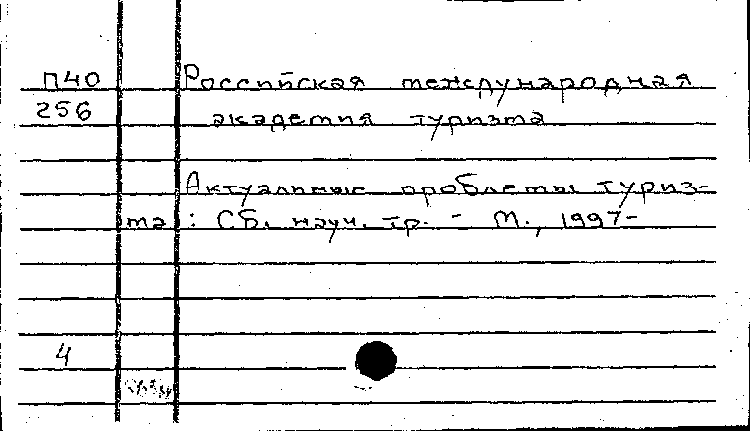 П40 Российская международная
256 академия туризма
Актуальные проблемы туриз-
ма: Сб. науч. тр. - М., 1997-
4